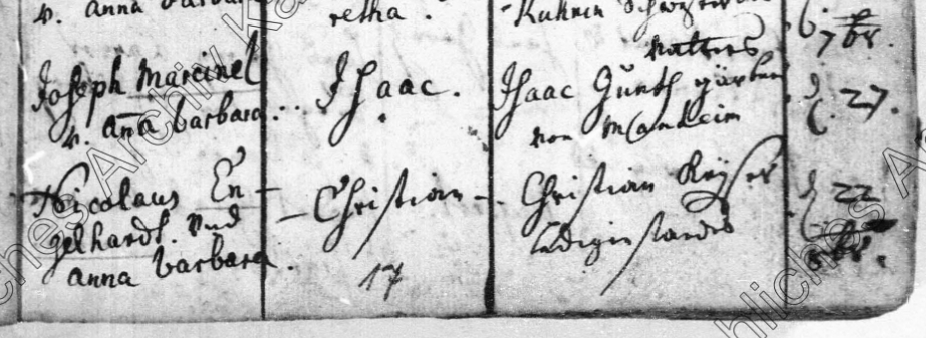 v. anna barbara
retha.
Joseph Marcinel
v. aña barbara.
Isaac.
Isaac Gunth gärber
von Manheim
d. 27.
Nicolaus En-
gelhardt. Und
anna barbara.
Christian
17
Christian Keyser
ledigen standes
d. 22
8br.
7br.